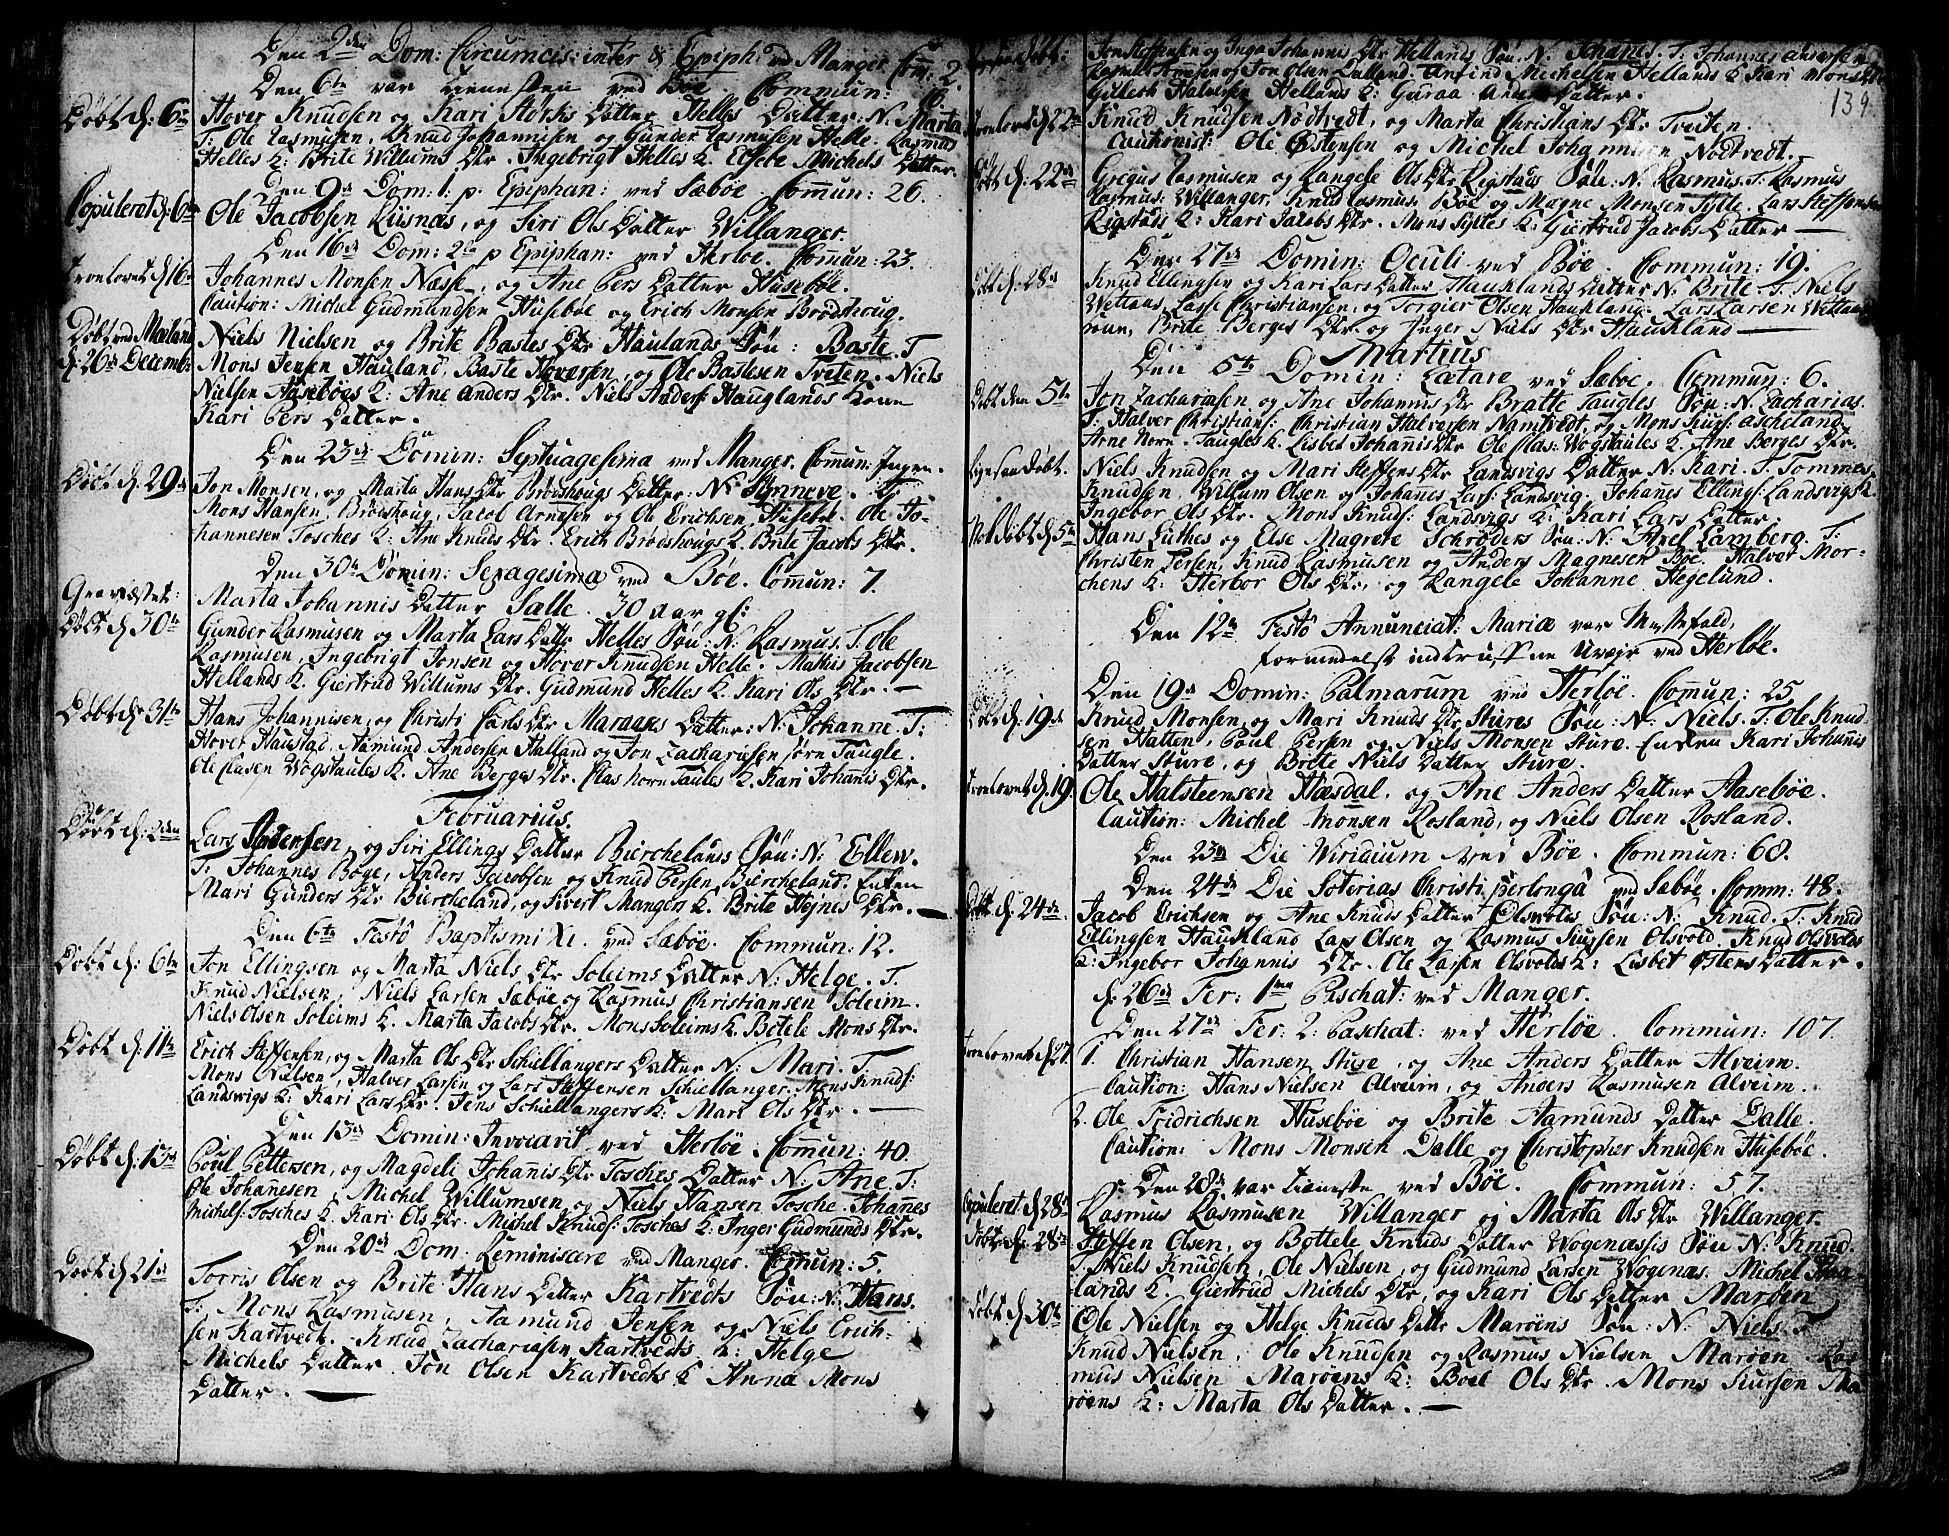 Den 2den Dom: Circumcis: inter & Epiph: ved Manger Com: 2.
Den 6te var tienesten ved Böe. Commun: 10.
Döbt d: 6te Hover Knudsen og Kari Storks Datter Helles Datter: N: Marta
T: Ole Rasmusen, Knud Johannisen og Gunder Rasmusen Helle. Rasmus
Helles K: Brite Willums Dtr. Ingebrigt Helles K. Elsebe Michels Datter.
Den 9de Dom: 1. p. Epiphan: ved Sæböe. Commun: 26.
Copuleret d: 6te Ole Jacobsen Riisnæs, og Siri Ols Datter Willanger
Den 16de Dom: 2da p Epiphan: ved Herlöe. Commun: 23.
Tronlovet d: 16de Johannes Monsen Næsse, og Ane Pers Datter Huseböe.
Caution: Michel Gudmundsen Huseböe og Erich Monsen Brödshoug.
Döbt ved Mæland d. 26de Decemb: Niels Nielsen og Brite Bastes Dtr Haulands Sön: Baste. T
Mons Jensen Hauland, Baste Hoversen, og Ole Bastesen Tveten. Niels
Nielsen Aaseböes K: Ane Anders Dtr. Niels Anders: Hauglands Kone
Kari Pers Datter.
Den 23de Domin: Septuagesima ved Manger. Commun: Ingen.
Döbt d. 29de Jon Monsen, og Marta Hans Dtr Brödshougs Datter: N: Synneve. T:
Mons Hansen, Brödshoug, Jacob Arnesen og Ole Erichsen, Huseböe. Ole Jo-
hannesen Tosches K: Ane Knuds Dtr. Erich Brödshougs K. Brite Jacobs Dtr.
Den 30te Domin: Sexagesima ved Böe. Comun: 7.
Gravfæstet: Marta Johannis Datter Sælle. 30 aar gl:
Döbt d 30te Gunder Rasmusen og Marta Lars Dattr Helles Sön: N: Rasmus. T. Ole
Rasmusen, Ingebrigt Jonsen og Hover Knudsen Helle. Mathis Jacobsen
Hellands K. Giertrud Willums Dtr. Gudmund Helles K. Kari Ols Dtr. —
Döbt d: 31te Hans Johannisen, og Christi Carls Dtr Maraaes Datter: N: Johanne. T:
Hover Haustad, Aamund Andersen Halland og Jon Zachariasen Taugle.
Ole Clasen Wogstaules K. Ane Berges Dtr. Clas Taules K. Kari Johanis Dtr.
Februarius.
Döbt d: 2den Lars Andersen, og Siri Ellings Datter Bircheland Sön: N: Ellew.
T: Johannes Böge, Anders Jacobsen og Knud Persen Bircheland. Enken
Mari Gunders Dtr Bircheland, og Sivert Mangers K. Brite Hejnes Dtr. —
Den 6te Festo Baptismi Xi. ved Sæböe. Commun: 12.
Döbt d: 6te Jon Ellingsen og Marta Niels Dtr Soleims Datter N: Helge. T.
Knud Nielsen, Niels Larsen Sæböe og Rasmus Christiansen Soleim.
Niels Olsen Soleims K. Marta Jacobs Dtr. Mons Soleims K. Botele Mons Dtr.
Döbt d: 11te Erich Steffensen, og Marta Ols Dtr Schiellangers Datter N: Mari. T.
Mons Nielsen, Halver Larsen og Lars Steffensen Schiellanger. Mons Knuds:
Landsvigs K: Kari Lars Dtr. Jens Schiellangers K: Mari Ols Dtr. —
Den 13de Domin: Invocavit ved Herlöe. Commun: 40.
Döbt d: 13de Poul Pettersen, og Magdeli Johanis Dtr Tosches Datter N: Ane. T:
Ole Johannesen, Michel Willumsen og Niels Hansen Tosche. Johannes
Michels: Tosches K. Kari Ols Dtr. Michel Knuds: Tosches K: Inger Gudmunds Dtr.
Den 20de Dom: Reminiscere ved Manger. Comun: 5.
Döbt d 21de Torris Olsen og Brite Hans Datter Kartvedts Sön: N: Hans.
T: Mons Rasmusen, Aamund Jensen og Niels Erich-
sen Kartvedt. Knud Zachariasen Kartvedts K: Helge
Michels Datter Jon Olsen Kartvedts K Anna Mons
Datter. —
139
Jon Steffensen og Inga Johannes Dtr Hellands Sön: N: Johanes. T: Johannes Andersen
Rasmus og Jon Olsen Dalland. Anfind Michelsen Hellands K: Kari Mons Dtr
Gilleth Halversen Hellands K: Guroa Datter.
Tronlovet d 22de Knud Knudsen Nodtvedt, og Marta Christians Dtr Treiten.
Cautionist: Ole Östensen og Michel Johannisen Nodtvedt.
Döbt d: 22de Gregus Rasmusen og Rangele Ols Dtr Rigstads Sön: N: Rasmus. T: Rasmus
Rasmus: Willanger, Knud Rasmus: Böe og Magne Monsen Sylte. Lars Steffensen
Rigstads K: Kari Jacobs Dtr. Mons Syltes K: Giertrud Jacobs Datter —
Den 27de Domin: Oculi ved Böe. Commun: 19.
Döbt d: 28de Knud Ellingsen og Kari Lars Datter Hauklands Datter N: Brite. T: Niels
Wetlans, Lasse Christiansen, og Torgier Olsen Haukland. Lars Larsen Wetlans
Brite Berges Dtr og Inger Niels Dtr Haukland —
Martius
Den 5te Domin: Lætare ved Sæböe. Commun: 6.
Döbt den 5te Jon Zachariasen og Ane Johannis Dtr Bratte Taugles Sön: N: Zacharias.
T. Halver Christians: Christian Halversen Namtvedt, og Mons Ascheland
Arne Taugles K. Lisbet Johannis Dtr Ole Clas: Wogstaules K. Ane Berges Dtr.
Ligesaa döbt. Niels Knudsen og Mari Steffens Dtr Landsvigs Datter N: Kari. T. Tommes
Knudsen, Willum Olsen og Johanis Lars: Landsvig. Johanes Ellings: Landsvigs K.
Ingebor Ols Dtr. Mons Knuds: Landsvigs K: Kari Lars Datter.
Nok döbt d 5te Hans Lüthes og Else Magrete Schröders Sön: N: Axel Lamberg. T:
Christen Persen, Knud Rasmusen og Anders Magnesen Böe. Halver Mor-
chens K: Herbor Ols Dtr, og Rangele Johanne Hegelund.
Den 12te Festo Annunciat: Mariæ var Messefald,
formedelst indtruffne Uvejr ved Herlöe.
Den 19de Domin: Palmarum ved Herlöe. Commun: 25.
Döbt d: 19de Knud Monsen og Mari Knuds Dtr Stures Sön: N: Niels. T: Ole Knud-
sen Hatten, Poul Persen og Niels Monsen Sture. Enken Kari Johanis
Datter Sture, og Brite Niels Datter Sture.
Tronlovet d. 19. Ole Halsteensen Hæsdal, og Ane Anders Datter Aaseböe.
Caution: Michel Monsen Rosland, og Niels Olsen Rosland.
Den 23de Die Viridium ved Böe. Commun: 68.
Den 24de Die Soterias Christi perlonga ved Sæböe. Comm: 48.
Döbt d: 24de Jacob Erichsen og Ane Knuds Datter Olsvolds Sön: N: Knud. T: Knud
Ellingsen Haukland Lars Olsen og Rasmus Olsvold. Knud Olsvolds
K: Ingebor Johannis Dtr. Ole Larsen Olsvolds K: Lisbet Östens Datter.
d: 26de Fer: 1ma Paschat: ved Manger.
Den 27de Fer: 2: Paschat: ved Herlöe. Commun: 107.
Tronlovet d 27. 1. Christian Hansen Sture, og Ane Anders Datter Alveim.
Caution: Hans Nielsen Alveim, og Anders Rasmusen Alveim.
2. Ole Fridrichsen Huseböe og Brite Aamunds Datter Dalle.
Caution: Mons Monsen Dalle og Christopher Knudsen Huseböe.
Den 28de var tieneste ved Böe. Commun: 57.
Copuleret d 28de Rasmus Rasmusen Willanger og Marta Ols Dtr Willanger.
Döbt d: 28de Steffen Olsen, og Bottele Knuds Datter Wogenæssis Sön N: Knud.
T. Niels Knudsen, Ole Nielsen, og Gudmund Larsen Wogenæs. Michel
lands K. Giertrud Michels Dtr, og Kari Ols Datter Maröen
Döbt d: 30te Ole Nielsen og Helge Knuds Dattr Maröens Sön: N: Niels. T
Knud Nielsen, Ole Knudsen og Rasmus Nielsen Maröen. Ras-
mus Nielsen Maröens K: Boel Ols Dtr. Mons Ma-
röens K: Marta Ols Datter. —